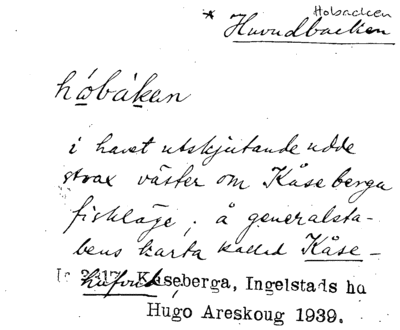 Hobacken
* Huvudbacken
håbåkan
i havet utskjutande udde
strax väster om Kåseberga
fiskläge; å generalsta-
bens karta kallad Kåse-
hufvud,
Kåseberga, Ingelstads hd
Hugo Areskoug 1939.